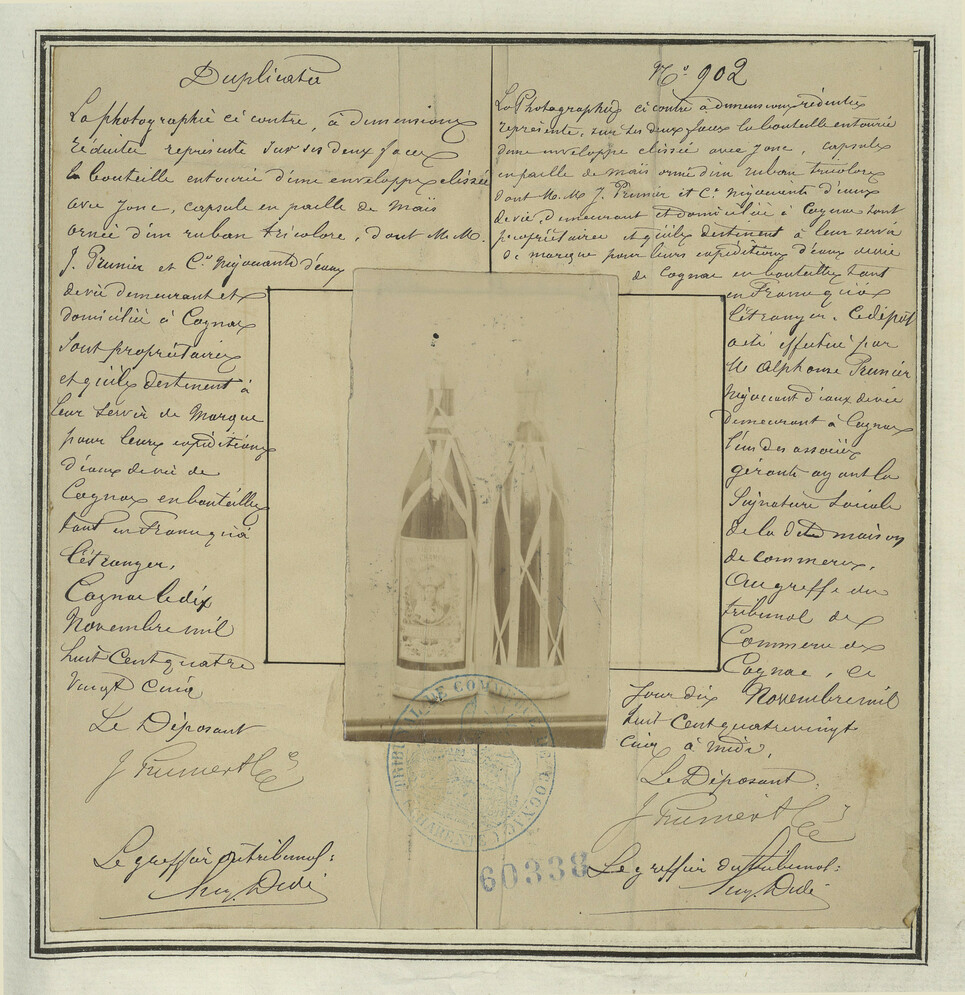 Duplicata
La photographie ci contre, à dimensions
réduites représente sur ses deux faces
la bouteille entourée d'une enveloppe clissée
avec jonc, capsule en paille de Maïs
ornée d'un ruban tricolore, dont M.M.
J. Prunier et Cie Négociants d'eaux
de vie demeurant et
domiciliés à Cognac
sont propriétaires
et qu'ils destinent à
leur servir de Marque
pour leurs expéditions
d'eaux de vie de
Cognac en bouteilles
tant en France qu'à
l'étranger.
Cognac le dix
Novembre mil
huit cent quatre
vingt cinq
Le Déposant
J Prunier & Cie
Le greffier du tribunal:
No. 902
La Photographie ci contre à dimensions réduites
représente, sur ses deux faces la bouteille entourée
d'une enveloppe clissée avec jonc, capsule
en paille de maïs ornée d'un ruban tricolore
dont M.M. J. Prunier et Cie négociants d'eaux
de vie, demeurant et domiciliés à Cognac sont
propriétaires et qu'ils destinent à leur servir
de marque pour leurs expéditions d'eaux de vie
de Cognac en bouteilles tant
en France qu'à
l'étranger. Ce dépôt
a été effectué par
Mr Alphonse Prunier
Négociant d'eaux de vie
demeurant à Cognac
l'un des associés
gérants ayant la
Signature Sociale
de la dite maison
de commerce.
Au greffe du
tribunal de
Commerce de
Cognac, le
Jour dix Novembre mil
huit cent quatre vingt
cinq à midi,
Le Déposant:
J Prunier & Cie
Le greffier du tribunal:
TRIBUNAL DE COMMERCE DE COGNAC
CHARENTE
60338